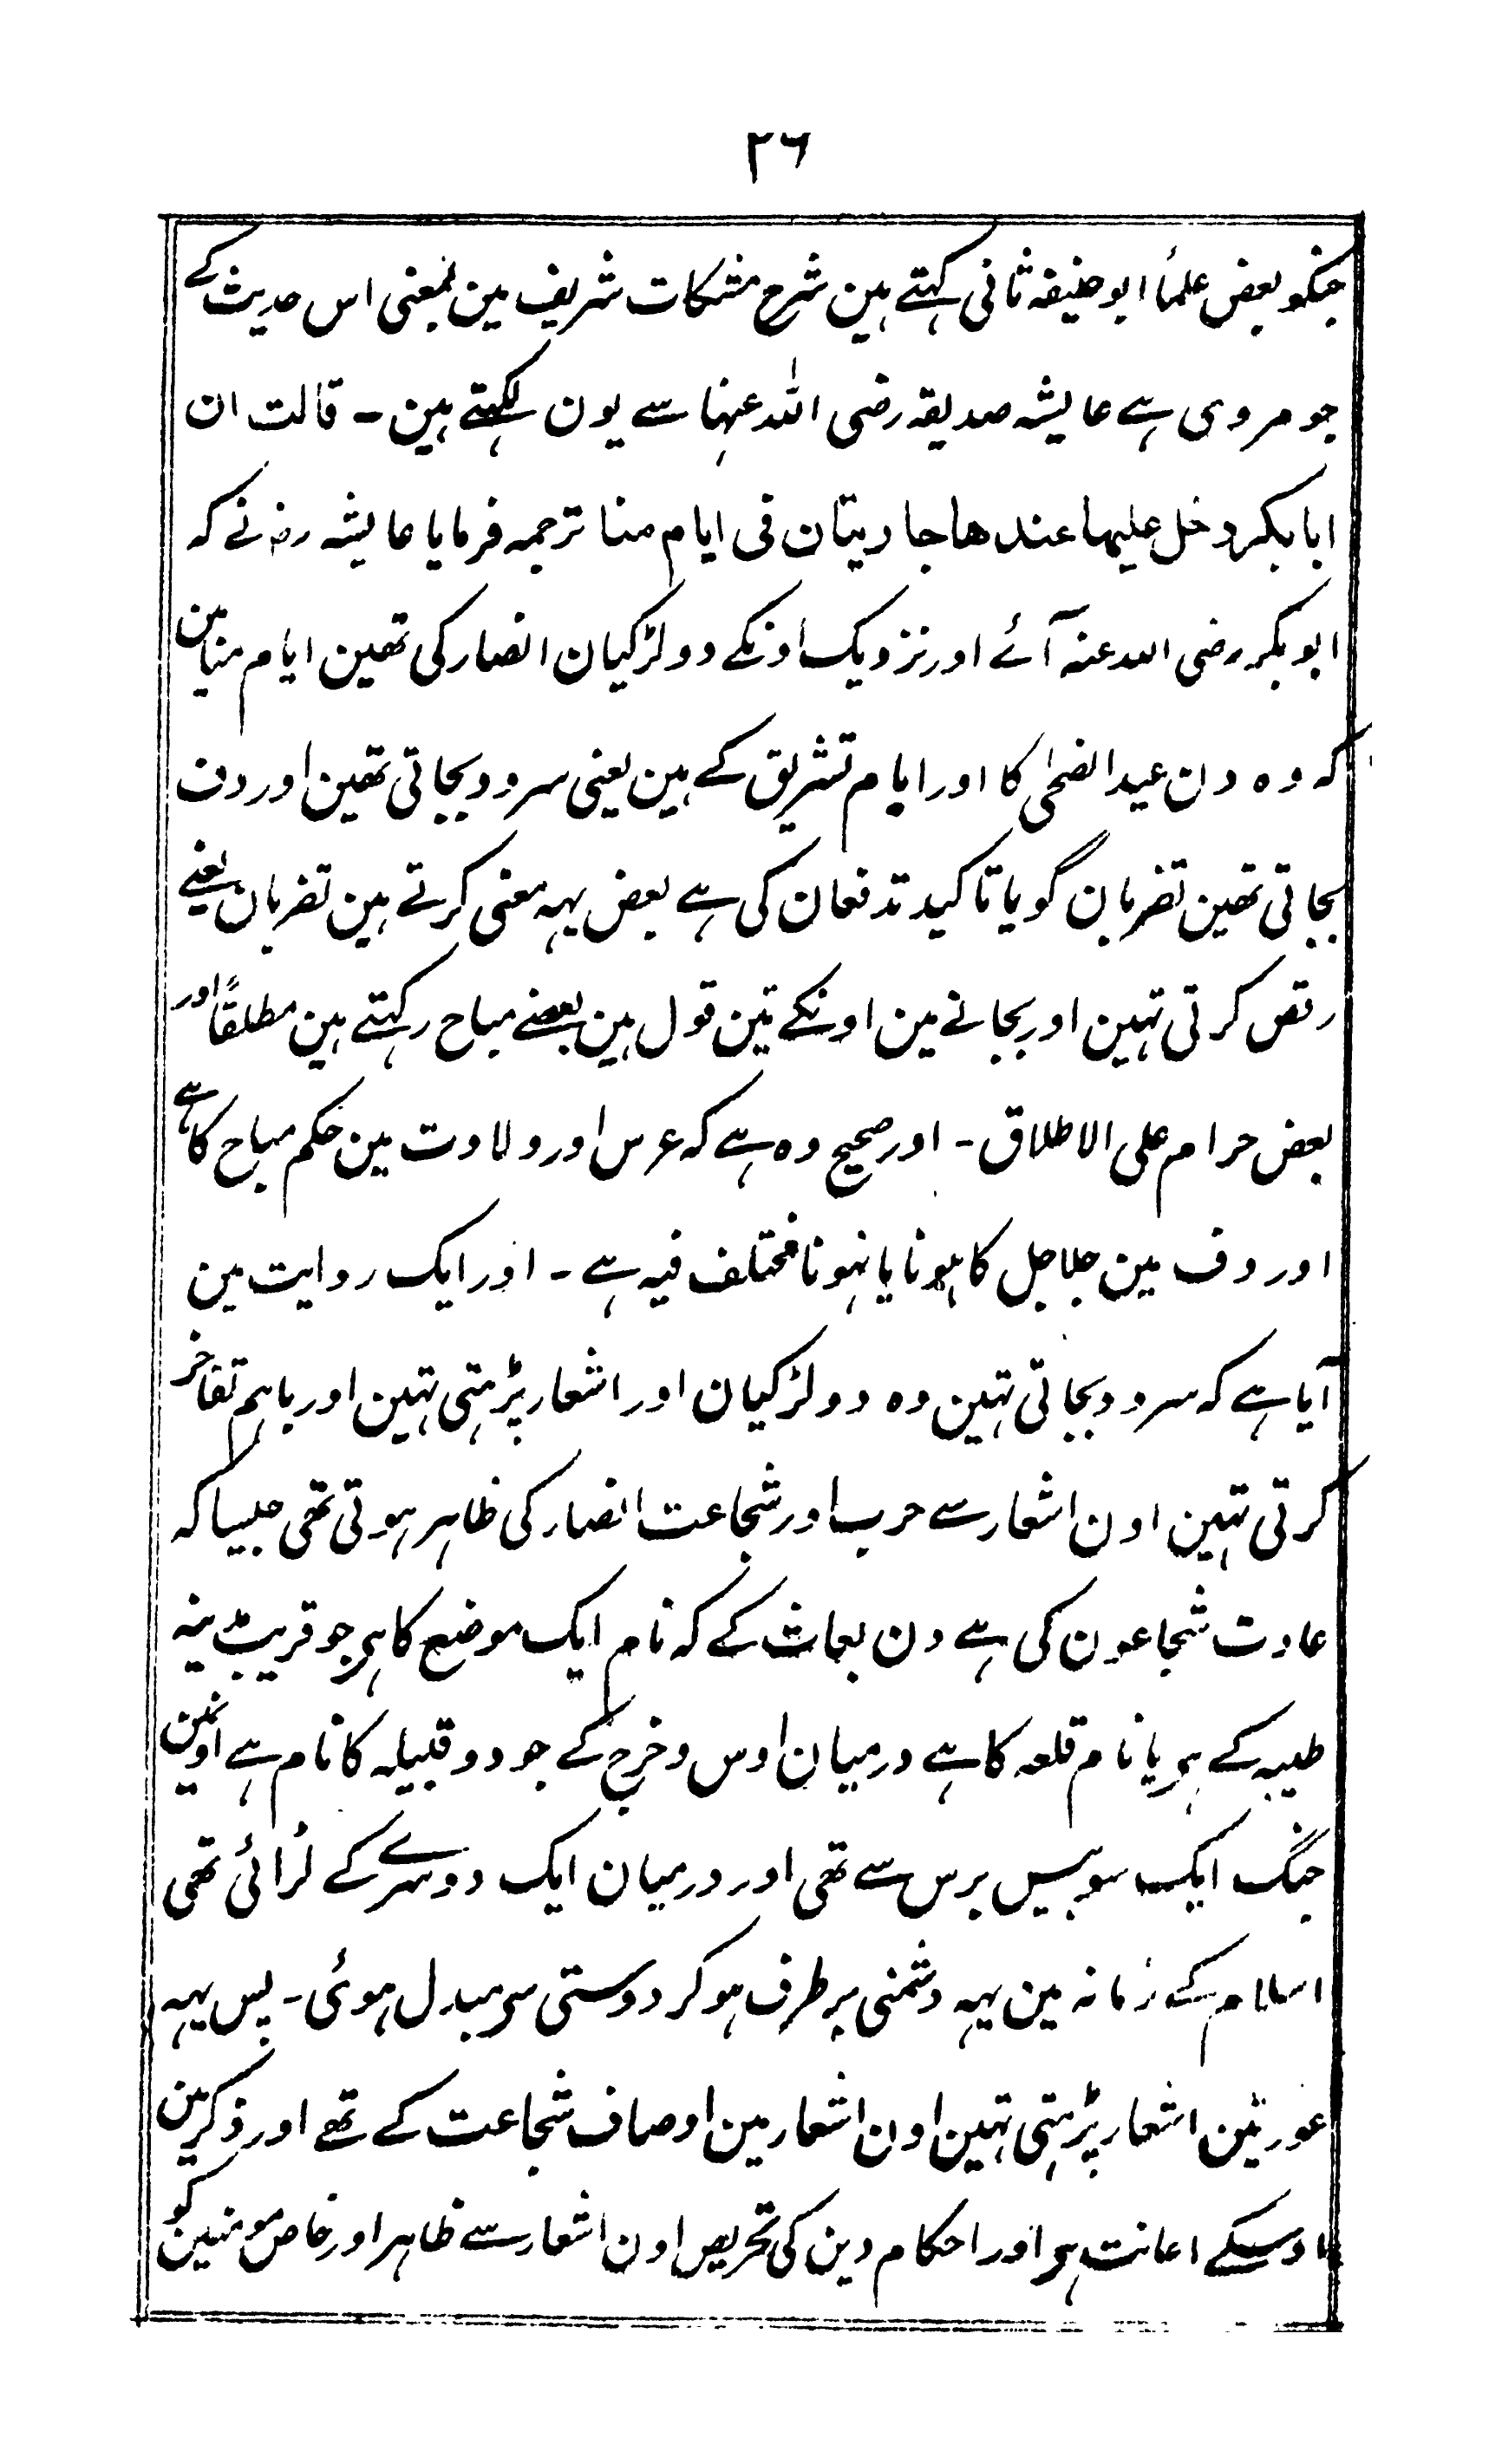 ۲۶
جنکو بعض علمأ ابو حنیفہ ثانی کہتے ہین شرح مشکات شریف مین بمعنی اس حدیث کے
جو مروی ہے عایشہ صدیقہ رضی اللہ عنہا سے یون لکہتے ہین ۔ قالت ان
ابا بکر دخل علیہا عندھا جاریتان فی ایام منا ترجمہ فرمایا عایشہ رضہ نے کہ
ابو بکر رضی اللہ عنہ آئے اور نزدیک اونکے دو لڑکیان انصار کی تھین ایام منا مین
کہ وہ دن عید الضحٰی کا اور ایام تشریق کے ہین یعنی سرود بجاتی تھین اور دف
بجاتی تھین تضربان گویا تاکید تدفعان کی ہے بعض یہہ معنی کرتے ہین تضربان یعنے
رقص کرتی تہین اور بجانے مین اونکے تین قول ہین بعضے مباح رکہتے ہین مطلقًا اور
بعض حرام علی الاطلاق ۔ اور صحیح وہ ہے کہ عرس اور ولادت مین حکم مباح کا ہے
اور دف مین جلاجل کا ہونا یا نہونا مختلف فیہ ہے ۔ اور ایک روایت مین
آیا ہے کہ سرود بجاتی تہین وہ دو لڑکیان اور اشعار پڑہتی تہین اور باہم تفاخر
کرتی تہین اون اشعار سے حرب اور شجاعت انصار کی ظاہر ہوتی تھی جیسا کہ
عادت شجاعون کی ہے دن بعاث کے کہ نام ایک موضع کا ہی جو قریب مدینہ
طیبہ کے ہی یا نام قلعہ کا ہے درمیان اوس و خزرج کے جو دو قبیلہ کا نام ہے اونمین
جنگ ایک سو بیس برس سے تھی اور درمیان ایک دوسرے کے لڑائی تھی
اسلام کے زمانہ مین یہہ دشمنی برطرف ہو کر دوستی سی مبدل ہوئی ۔ پس یہہ
عورتین اشعار پڑہتی تہین اون اشعار مین اوصاف شجاعت کے تھے اور ذکر مین
اوسکے اعانت ہی اور احکام دین کی تحریص اون اشعار سے ظاہر اور خاص مومنین کو